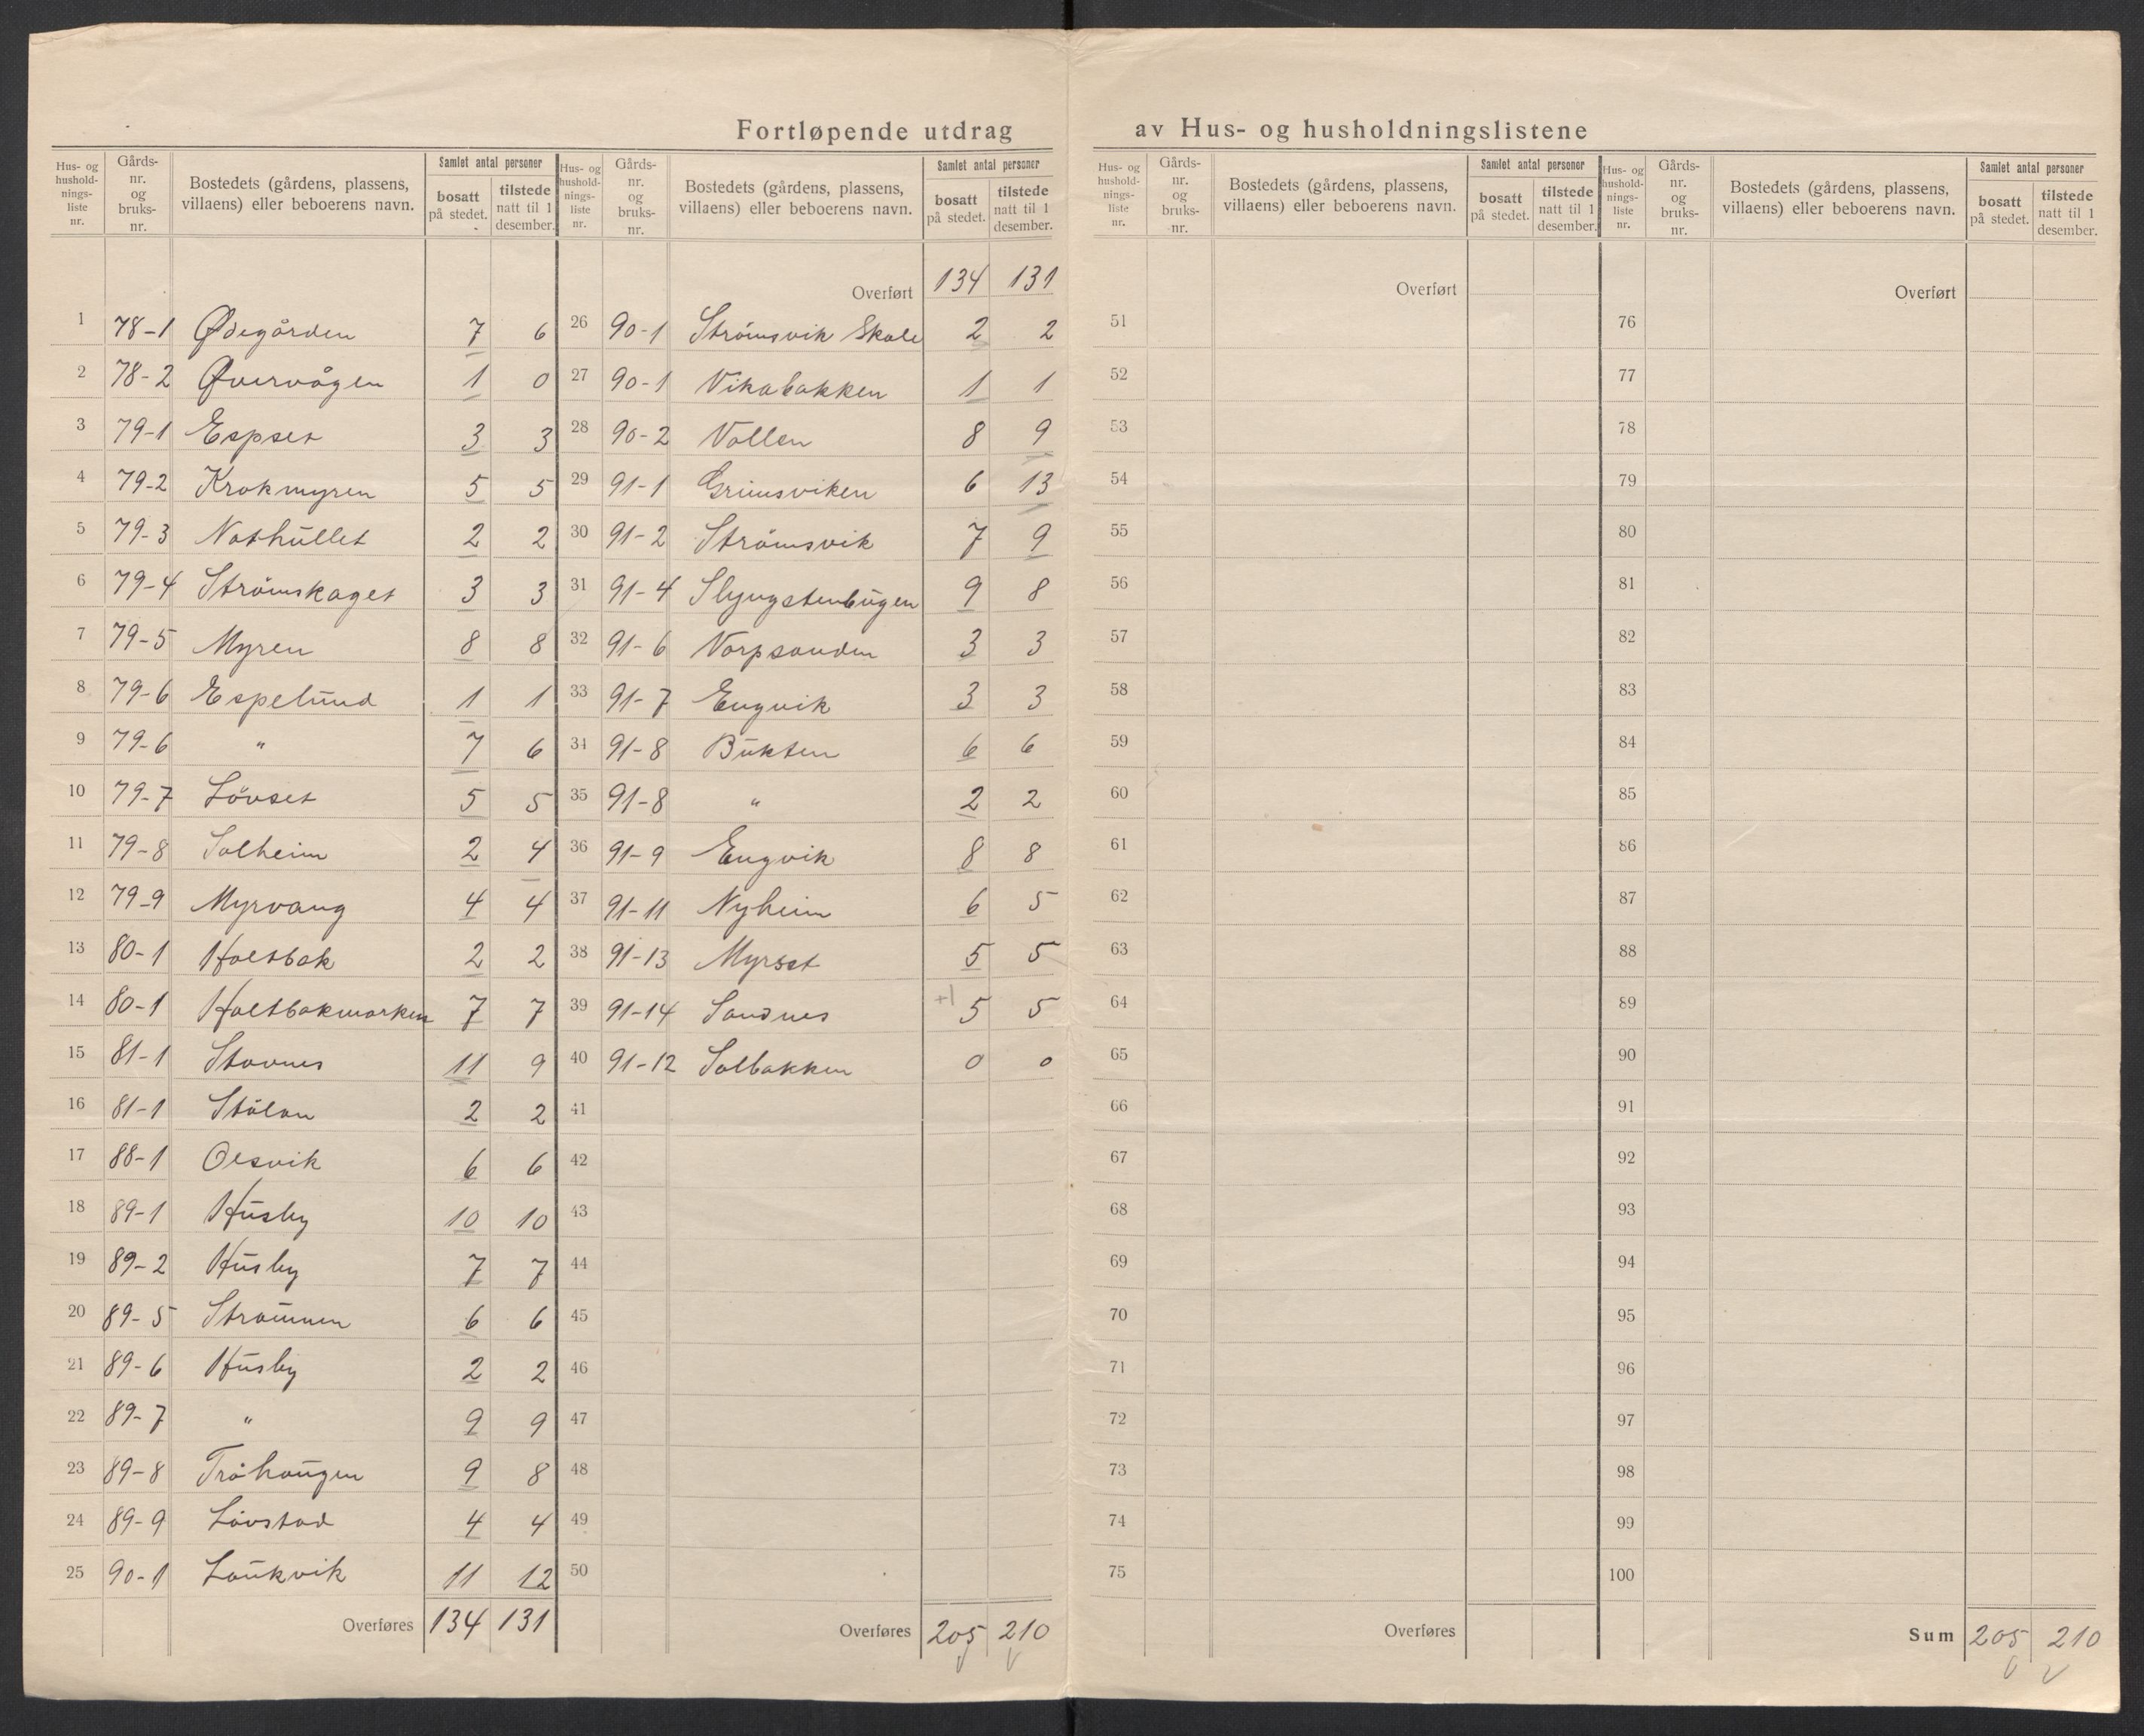 Fortløpende utdrag av Hus- og husholdningslistene
Hus- og hushold-nings-liste nr. | Gårds-nr. og bruks-nr. | Bostedets (gårdens, plassens, villaens) eller beboerens navn. | Samlet antal personer | bosatt på stedet. | tilstede natt til 1 desember.
1 78-1 Ødegården 7 6
2 78-2 Øvervågen 1 0
3 79-1 Espset 3 3
4 79-2 Krokmyren 5 5
5 79-3 Nothullet 2 2
6 79-4 Strömskaget 3 3
7 79-5 Myren 8 8
8 79-6 Espelund 1 1
9 79-6 " 7 6
10 79-7 Lövset 5 5
11 79-8 Solheim 2 4
12 79-9 Myrvang 4 4
13 80-1 Holtbak 2 2
14 80-1 Holtbakmarken 7 7
15 81-1 Stavnes 11 9
16 81-1 Stölan 2 2
17 88-1 Olsvik 6 6
18 89-1 Husby 10 10
19 89-2 Husby 7 7
20 89-5 Strömmen 6 6
21 89-6 Husby 2 2
22 89-7 " 9 9
23 89-8 Tråhaugen 9 8
24 89-9 Lövstad 4 4
25 90-1 Laukvik 11 12
Overføres 134 131
Hus- og hushold-nings-liste nr. | Gårds-nr. og bruks-nr. | Bostedets (gårdens, plassens, villaens) eller beboerens navn. | Samlet antal personer | bosatt på stedet. | tilstede natt til 1 desember.
Overført 134 131
26 90-1 Strömsvik Skole 2 2
27 90-1 Vikabakken 1 1
28 90-2 Vollen 8 9
29 91-1 Grimsviken 6 13
30 91-2 Strömsvik 7 9
31 91-4 Slyngstenbugen 9 8
32 91-6 Vorpsanden 3 3
33 91-7 Engvik 3 3
34 91-8 Bukten 6 6
35 91-8 " 2 2
36 91-9 Engvik 8 8
37 91-11 Nyheim 6 5
38 91-13 Myrset 5 5
39 91-14 Sandnes +1 5 5
40 91-12 Solbakken 0 0
41
42
43
44
45
46
47
48
49
50
Overføres 205 210
Hus- og hushold-nings-liste nr. | Gårds-nr. og bruks-nr. | Bostedets (gårdens, plassens, villaens) eller beboerens navn. | Samlet antal personer | bosatt på stedet. | tilstede natt til 1 desember.
Overført
51
52
53
54
55
56
57
58
59
60
61
62
63
64
65
66
67
68
69
70
71
72
73
74
75
Overføres
Hus- og hushold-nings-liste nr. | Gårds-nr. og bruks-nr. | Bostedets (gårdens, plassens, villaens) eller beboerens navn. | Samlet antal personer | bosatt på stedet. | tilstede natt til 1 desember.
Overført
76
77
78
79
80
81
82
83
84
85
86
87
88
89
90
91
92
93
94
95
96
97
98
99
100
Sum 205 210